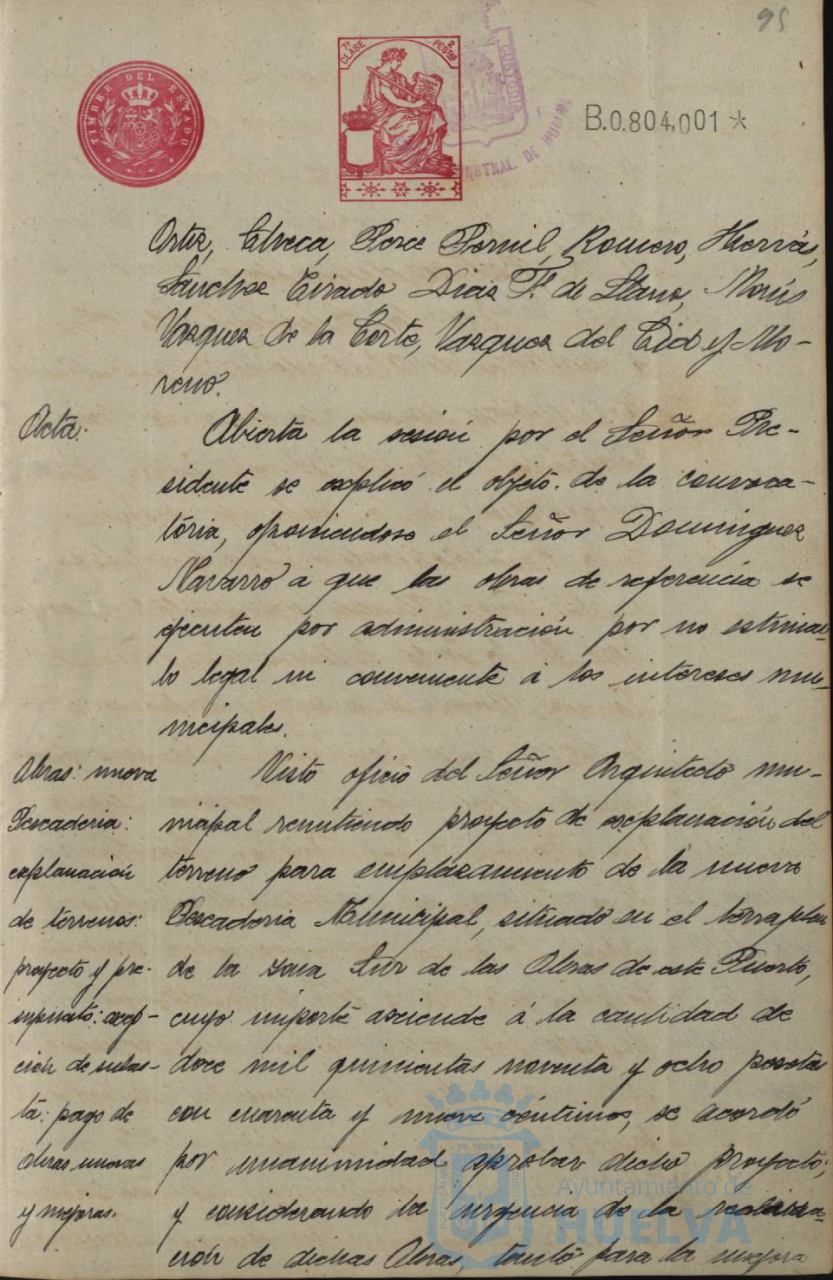 95
TIMBRE DEL ESTADO
7ª CLASE 2 PESETAS
CUSTODIA
B.0.804,001 *
Ortiz, Checa, Pérez Pernil, Romero, Hierrás,
Sánchez Tirado, Diaz F. de Llano, Morís
Vazquez de la Corte, Vazquez del Cid y Mo-
reno.
Acta.
Abierta la sesión por el Señor Pre-
sidente se explicó el objeto de la convoca-
tória, oponiendose el Señor Dominguez
Navarro á que las obras de referencia se
ejecuten por administración por no estimar-
lo legal ni conveniente á los intereses mu-
nicipales.
Obras: nueva
Pescaderia:
explanación
de terrenos:
proyecto y pre-
supuesto: excep-
ción de subas-
ta: pago de
obras nuevas
y mejoras.
Visto oficio del Señor Arquitecto mu-
nicipal remitiendo proyecto de explanación del
terreno para emplazamiento de la nueva
Pescaderia Municipal, situado en el terraplen
de la zona Sur de las Obras de este Puerto,
cuyo importe asciende á la cantidad de
doce mil quinientas noventa y ocho pesetas
con cuarenta y nueve céntimos, se acordó
por unanimidad aprobar dicho proyecto;
y considerando la urgencia de la realiza-
ción de dichas Obras, tanto para la mejora
Ayuntamiento de
HUELVA